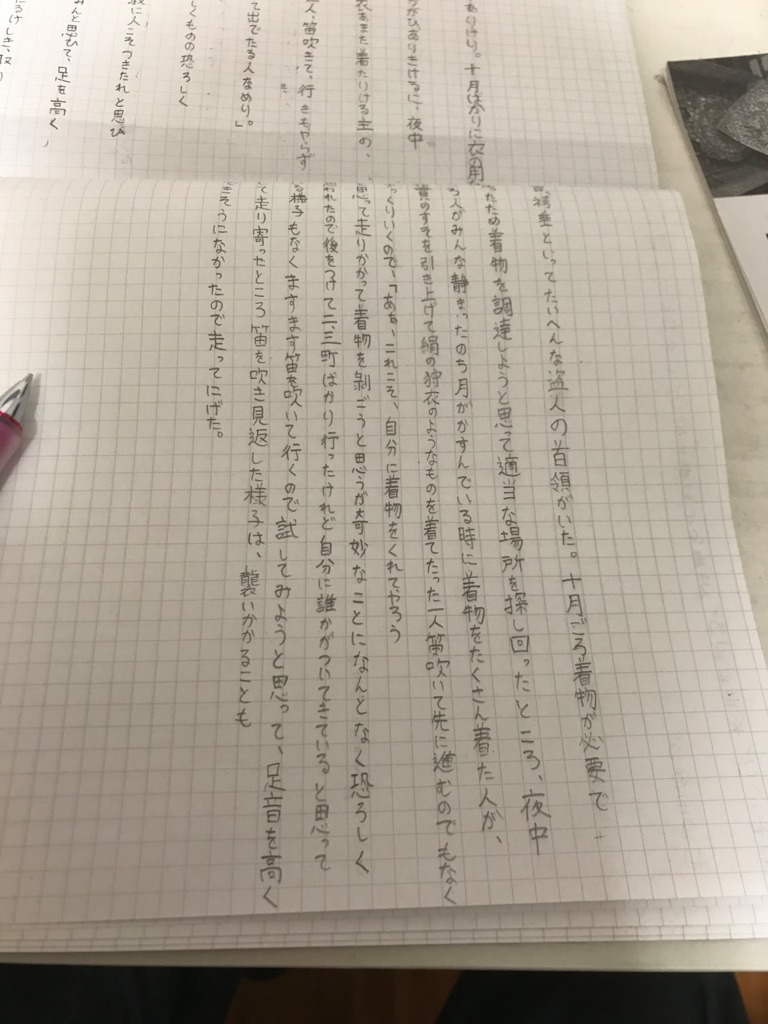 ありけり。十月ばかりに衣の用
がひありきけるに、夜中
衣あまた着たりける主の、
人、笛吹きて、行きもやらず
て出でたる人なめり。」
しくものの恐ろしく
我に人こそつきたれと思ひ
みんと思ひて、足を高く、
たるけしき、取り
袴垂といってたいへんな盗人の首領がいた。十月ごろ着物が必要で
ったため着物を調達しようと思って適当な場所を探し回ったところ、夜中
る人がみんな静まったのち月がかすんでいる時に着物をたくさん着た人が、
貫のすそを引き上げて絹の狩衣のようなものを着てたった一人笛吹いて先に進むのでもなく
っくりいくので、「あぁ、これこそ、自分に着物をくれてやろう
思って走りかかって着物を剥ごうと思うが奇妙なことになんとなく恐ろしく
われたので後をつけて二、三町ばかり行ったけれど自分に誰かがついてきていると思って
る様子もなくますます笛を吹いて行くので試してみようと思って、足音を高く
て走り寄ったところ笛を吹き見返した様子は、襲いかかることも
できそうになかったので走ってにげた。